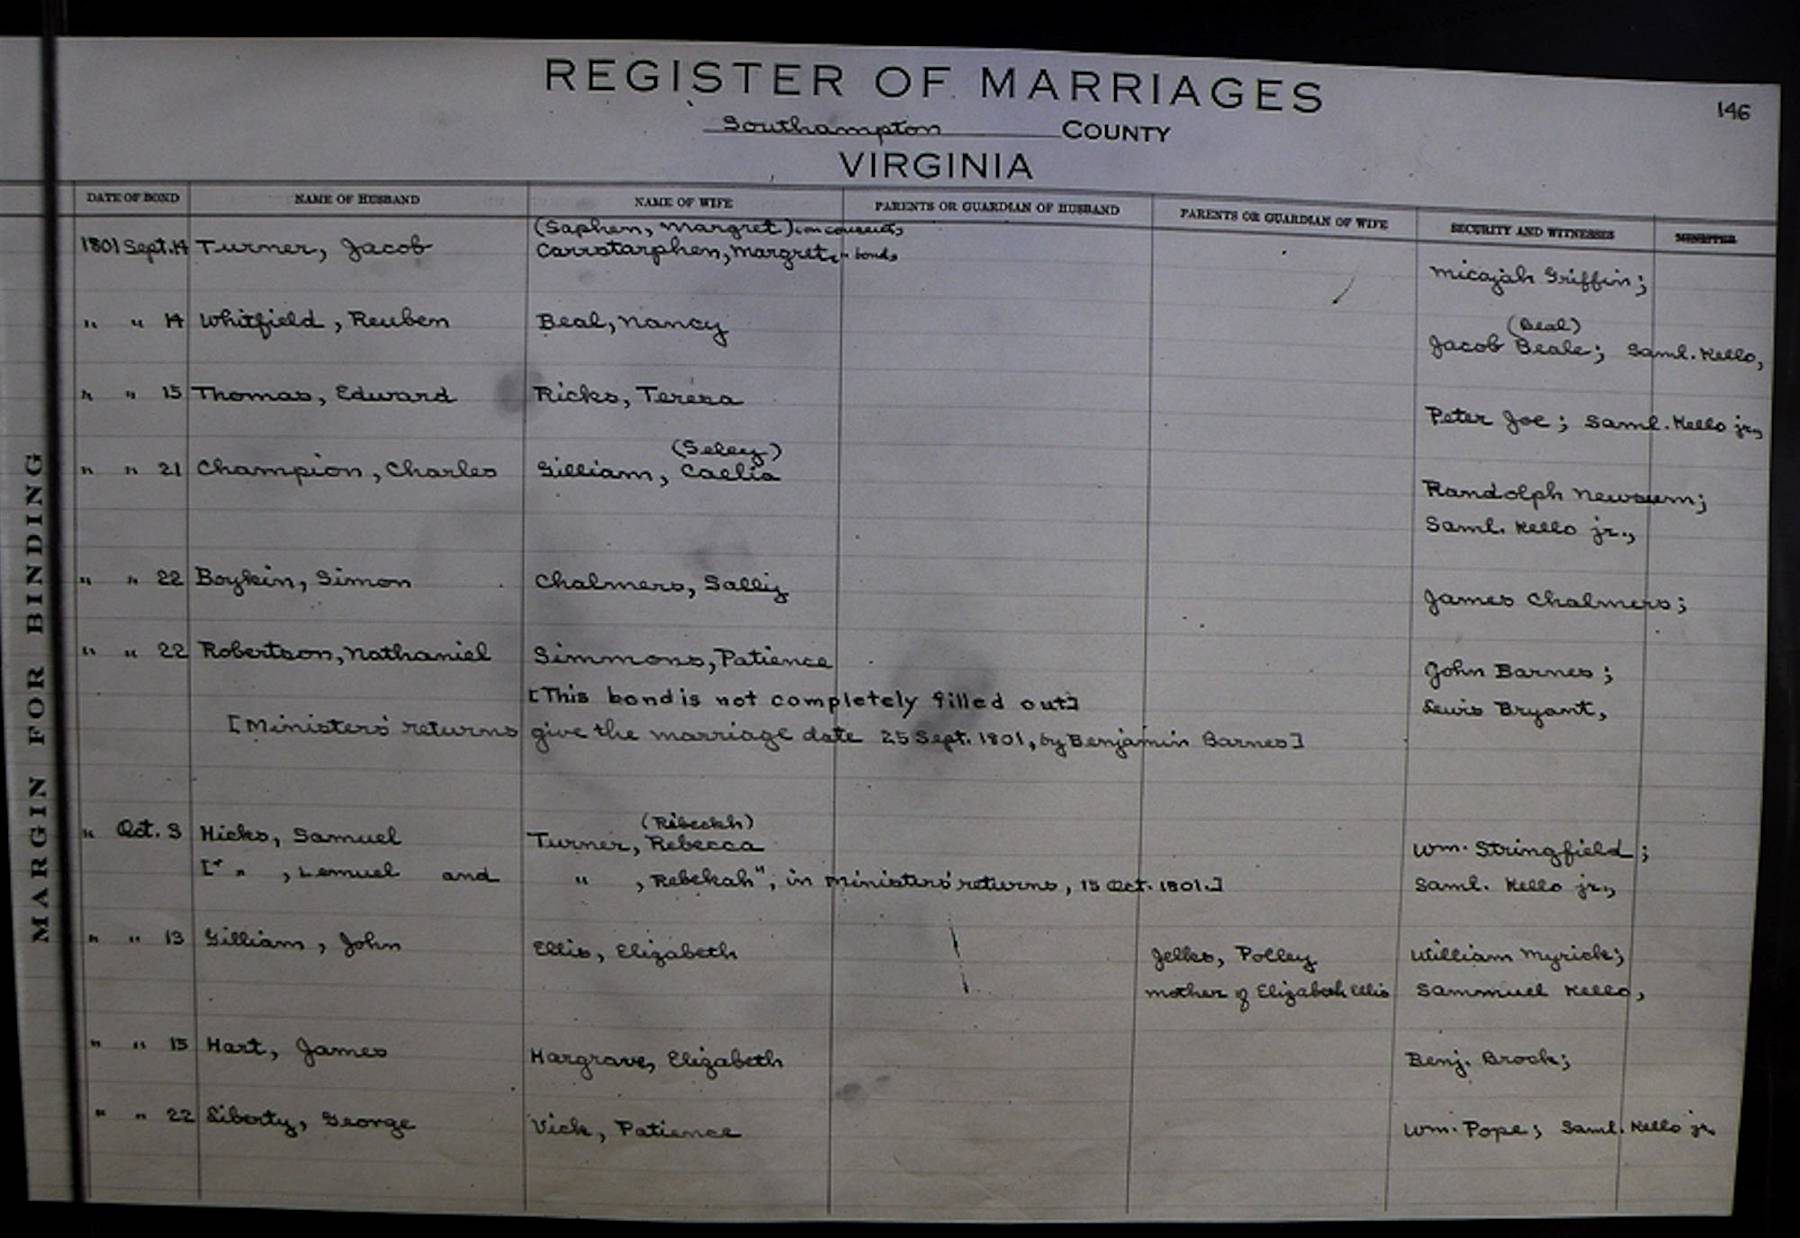 REGISTER OF MARRIAGES
146
Southampton COUNTY
VIRGINIA
DATE OF BOND NAME OF HUSBAND NAME OF WIFE PARENTS OR GUARDIAN OF HUSBAND PARENTS OR GUARDIAN OF WIFE SECURITY AND WITNESSES MINISTER
(Saphen, Margret) in consent,
1801 Sept. 14 Turner, Jacob Carrstarphen, Margret, in bond,
Micajah Griffin;
" " 14 Whitfield, Reuben Beal, Nancy
(Beal)
Jacob Beale; Saml. Kello,
" " 15 Thomas, Edward Ricks, Tereza
Peter Joe; Saml. Kello jr.,
(Seley)
" " 21 Champion, Charles Gilliam, Caelia
Randolph Newsum;
Saml. Kello jr.,
" " 22 Boykin, Simon Chalmers, Sally
James Chalmers;
" " 22 Robertson, Nathaniel Simmons, Patience
John Barnes;
[This bond is not completely filled out]
Lewis Bryant,
[Ministers' returns give the marriage date 25 Sept. 1801, by Benjamin Barnes]
(Ribeckh)
" Oct. 3 Hicks, Samuel Turner, Rebecca Wm. Stringfield;
[" " , Lemuel and " , Rebekah", in Ministers' returns, 15 Oct. 1801.] Saml. Kello jr.,
" " 13 Gilliam, John Ellis, Elizabeth Jelks, Polley William Myrick;
mother of Elizabeth Ellis Sammuel Kello,
" " 15 Hart, James Hargrave, Elizabeth Benj. Brock;
" " 22 Liberty, George Vick, Patience Wm. Pope; Saml. Kello jr.
MARGIN FOR BINDING